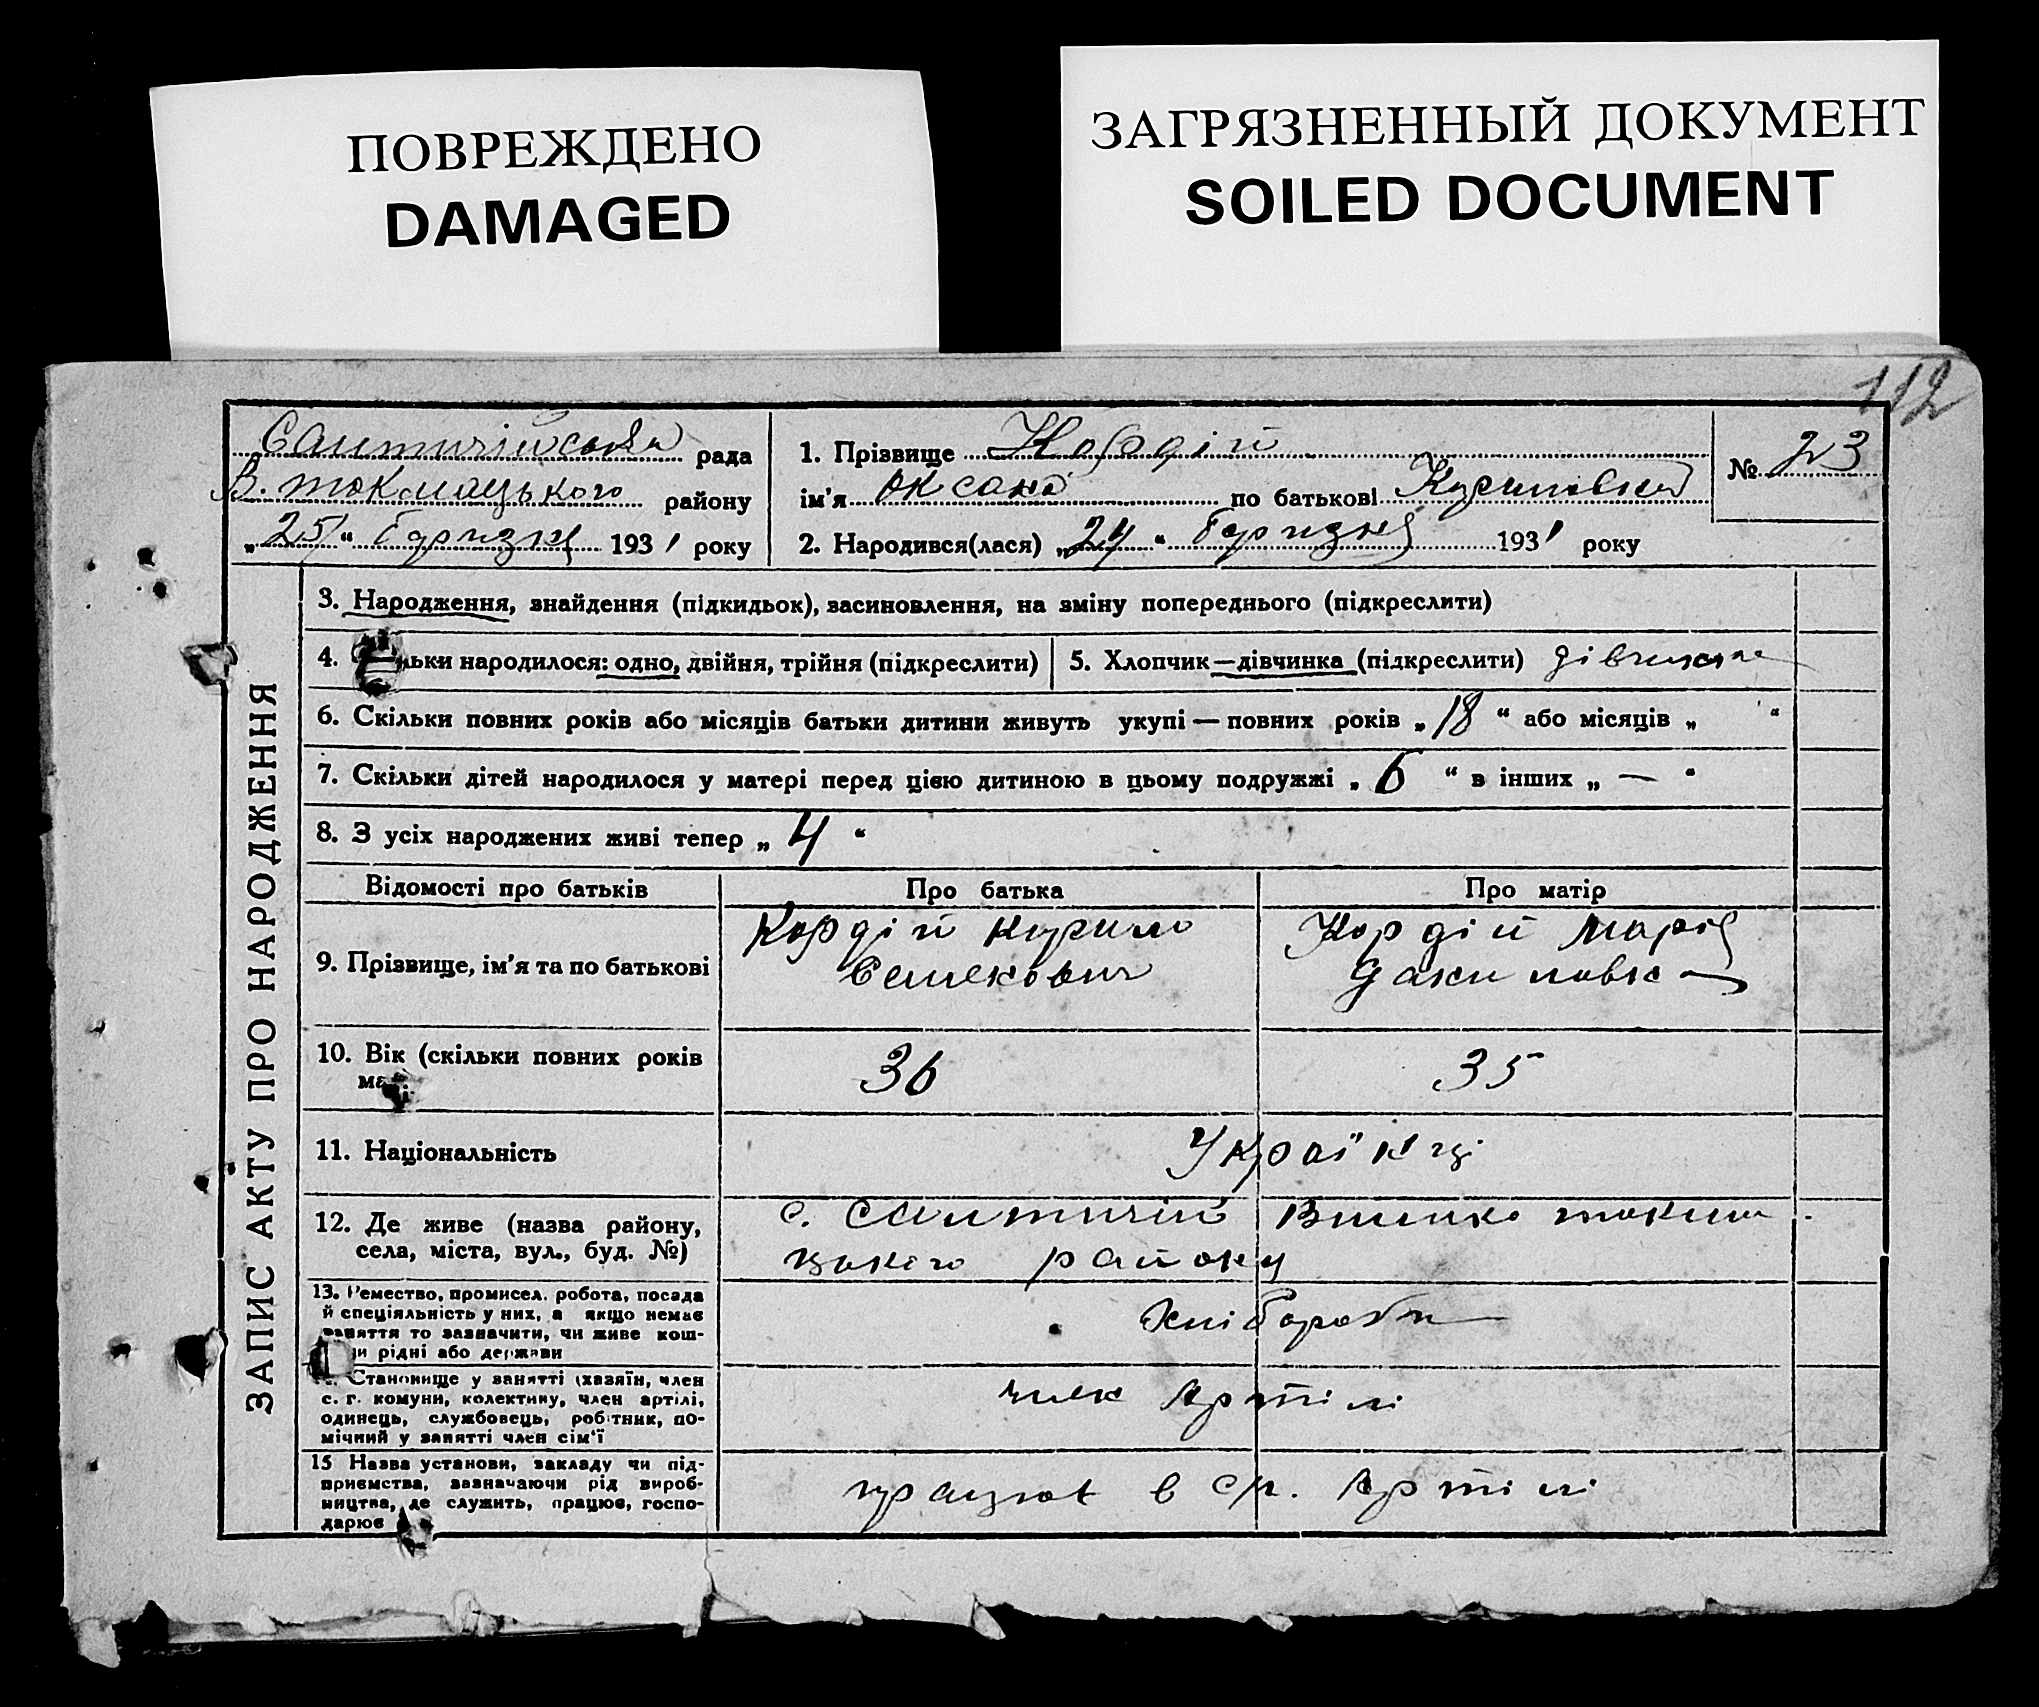 ПОВРЕЖДЕНО
DAMAGED
ЗАГРЯЗНЕННЫЙ ДОКУМЕНТ
SOILED DOCUMENT
112
Салтичійська рада
В. токмацького району
„25“ березня 1931 року
1. Прізвище Кордій
ім'я Оксана по батькові Кириловна
2. Народився(лася) „24“ березня 1931 року
№ 23
ЗАПИС АКТУ ПРО НАРОДЖЕННЯ
3. Народження, знайдення (підкидьок), засиновлення, на зміну попереднього (підкреслити)
4. льки народилося: одно, двійня, трійня (підкреслити)
5. Хлопчик—дівчинка (підкреслити) дівчинка
6. Скільки повних років або місяців батьки дитини живуть укупі — повних років „18“ або місяців „ “
7. Скільки дітей народилося у матері перед цією дитиною в цьому подружжі „6“ в інших „—“
8. З усіх народжених живі тепер „4“
Відомості про батьків
Про батька
Про матір
9. Прізвище, ім'я та по батькові
Кордій Кирило
Семенович
Кордій Марія
Якимовна
10. Вік (скільки повних років
має
36
35
11. Національність
Українці
12. Де живе (назва району,
села, міста, вул., буд. №)
с. Салтичій Велико токма
цького району
13. Ремество, промисел, робота, посада
й спеціяльність у них, а якщо немає
заняття то зазначити, чи живе кош-
ти рідні або держави
Хлібороби
Становище у занятті (хазяїн, член
с. г. комуни, колективу, член артілі,
одинець, службовець, робітник, по-
мічний у занятті член сім'ї
член Артілі
15 Назва установи, закладу чи під-
приємства, зазначаючи рід вироб-
ництва, де служить, працює, госпо-
дарює
працює в с/г. Артілі